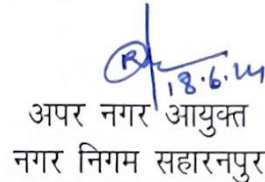 18.6.24
अपर नगर आयुक्त
नगर निगम सहारनपुर